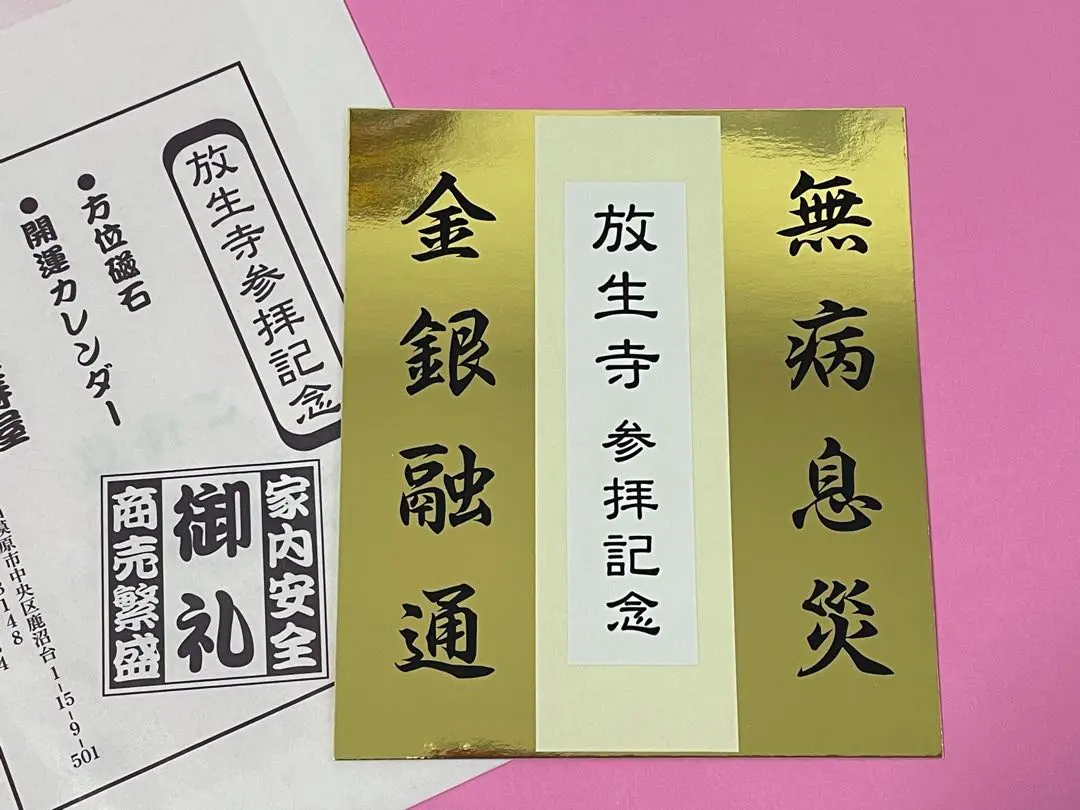 無病息災
放生寺参拝記念
金銀融通
放生寺参拝記念
●方位磁石
●開運カレンダー
家内安全
御礼
商売繁盛
模原市中央区鹿沼台1-15-9-501